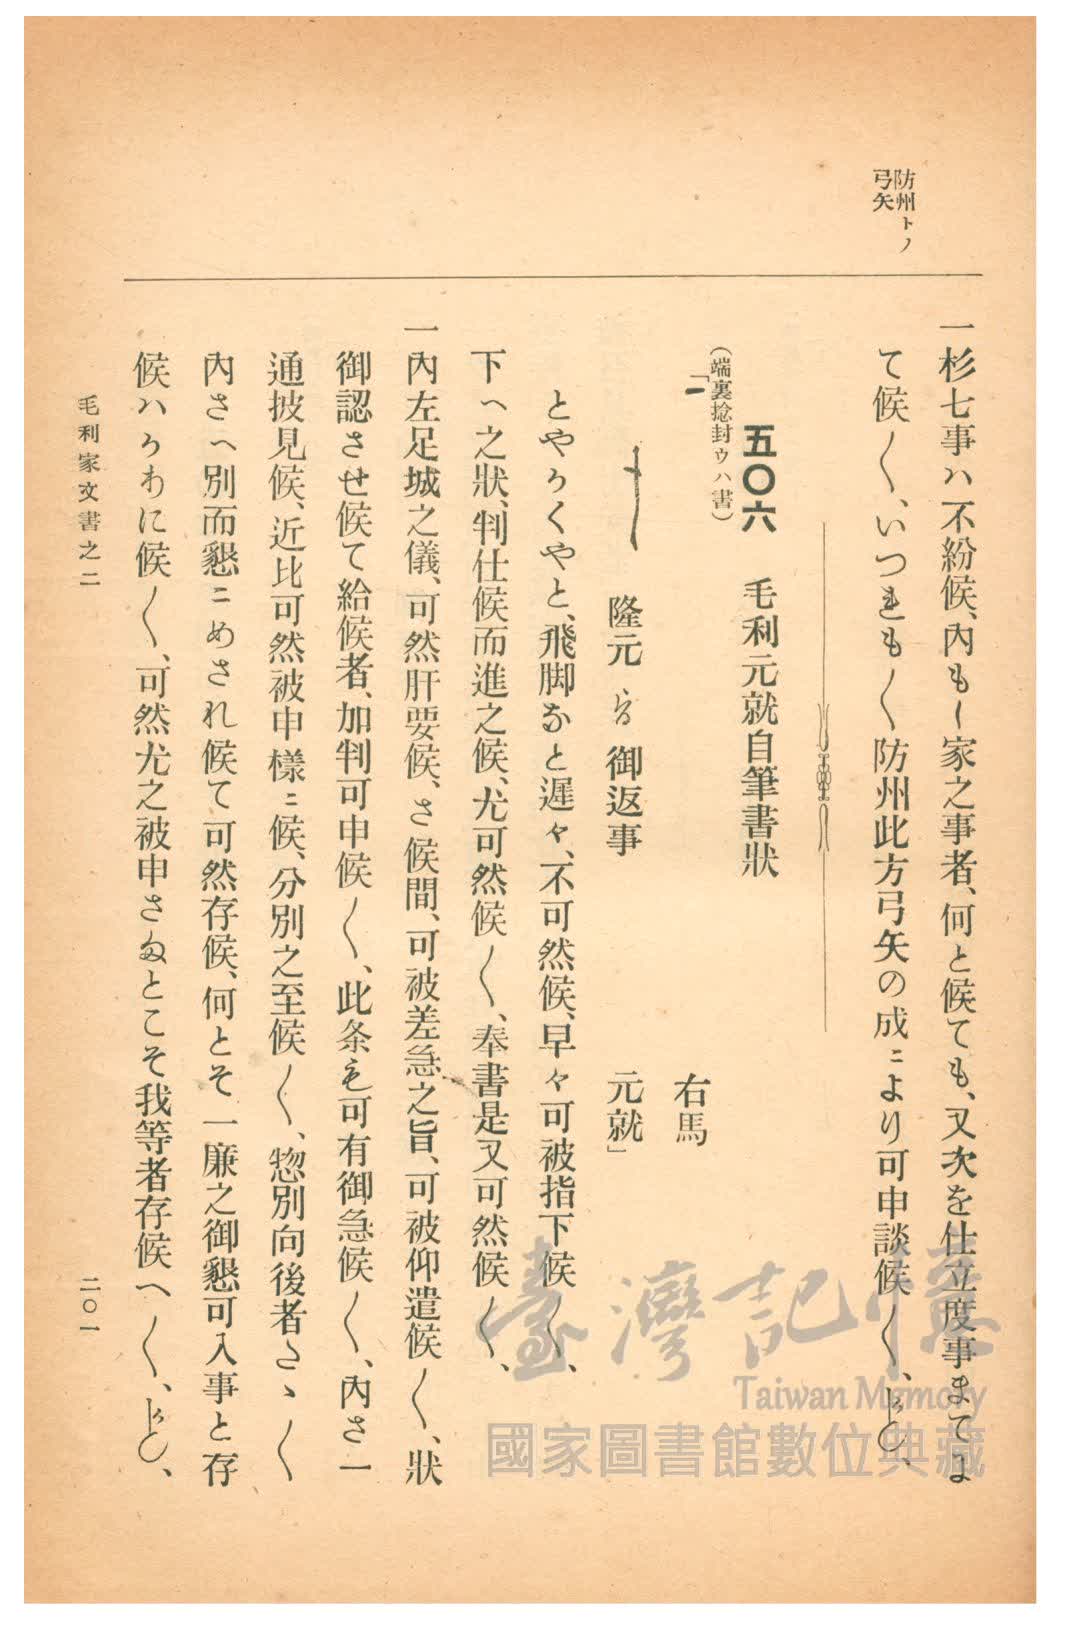 防州トノ
弓矢
一杉七事ハ不紛候、內も〳〵家之事者、何と候ても、又次を仕立度事まてに
て候〳〵、いつれも〳〵防州此方弓矢の成ニより可申談候〳〵、
五〇六 毛利元就自筆書狀
（端裏捻封ウハ書）
「
右馬
隆元 御返事 元就」
とやかくやと、飛脚なと遲々、不可然候、早々可被指下候〳〵、
下へ之狀、判仕候而進之候、尤可然候〳〵、奉書是又可然候〳〵、
一內左足城之儀、可然肝要候、さ候間、可被差急之旨、可被仰遣候〳〵、狀
御認させ候て給候者、加判可申候〳〵、此条も可有御急候〳〵、內さ一
通披見候、近比可然被申樣ニ候、分別之至候〳〵、惣別向後者さゝ〳〵
內さへ別而懇ニめされ候て可然存候、何とそ一廉之御懇可入事と存
候ハかりに候〳〵、可然尤之被申さまとこそ我等者存候へ〳〵、
毛利家文書之二
二〇一
臺灣記憶
Taiwan Memory
國家圖書館數位典藏